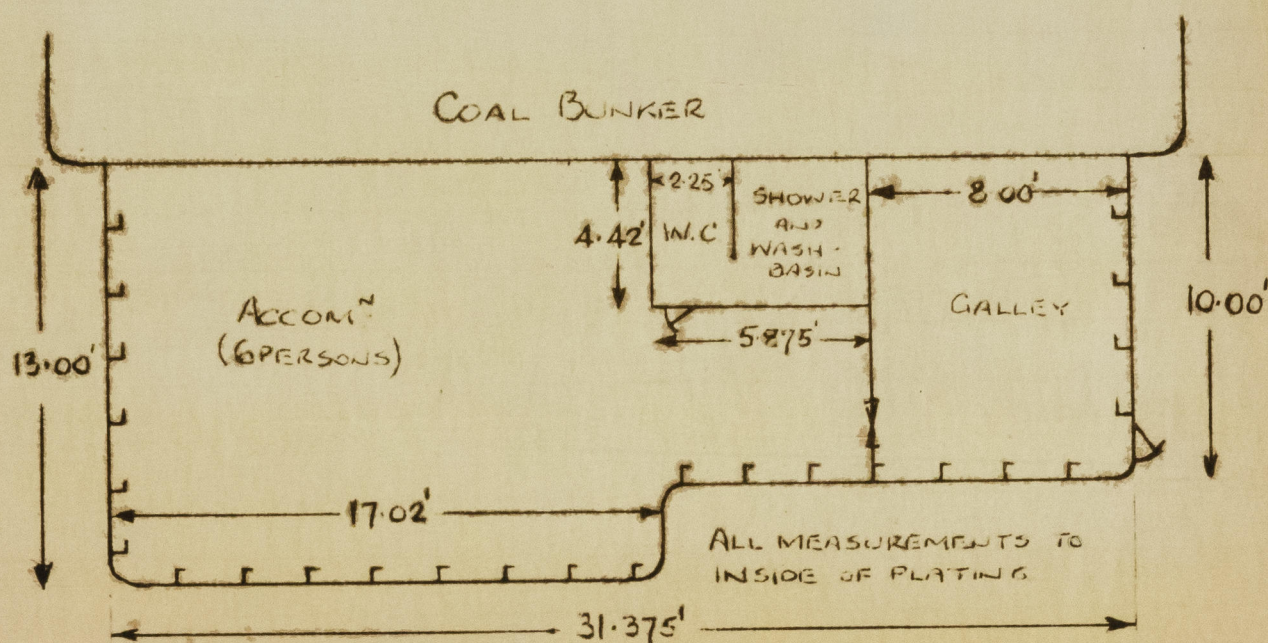 COAL BUNKER
2.25'
W.C
SHOWER
AND
WASH-
BASIN
8.00'
4.42'
10.00'
ACCOMᴺ
(6 PERSONS)
GALLEY
13.00'
5.875'
17.02'
ALL MEASUREMENTS TO
INSIDE OF PLATING
31.375'